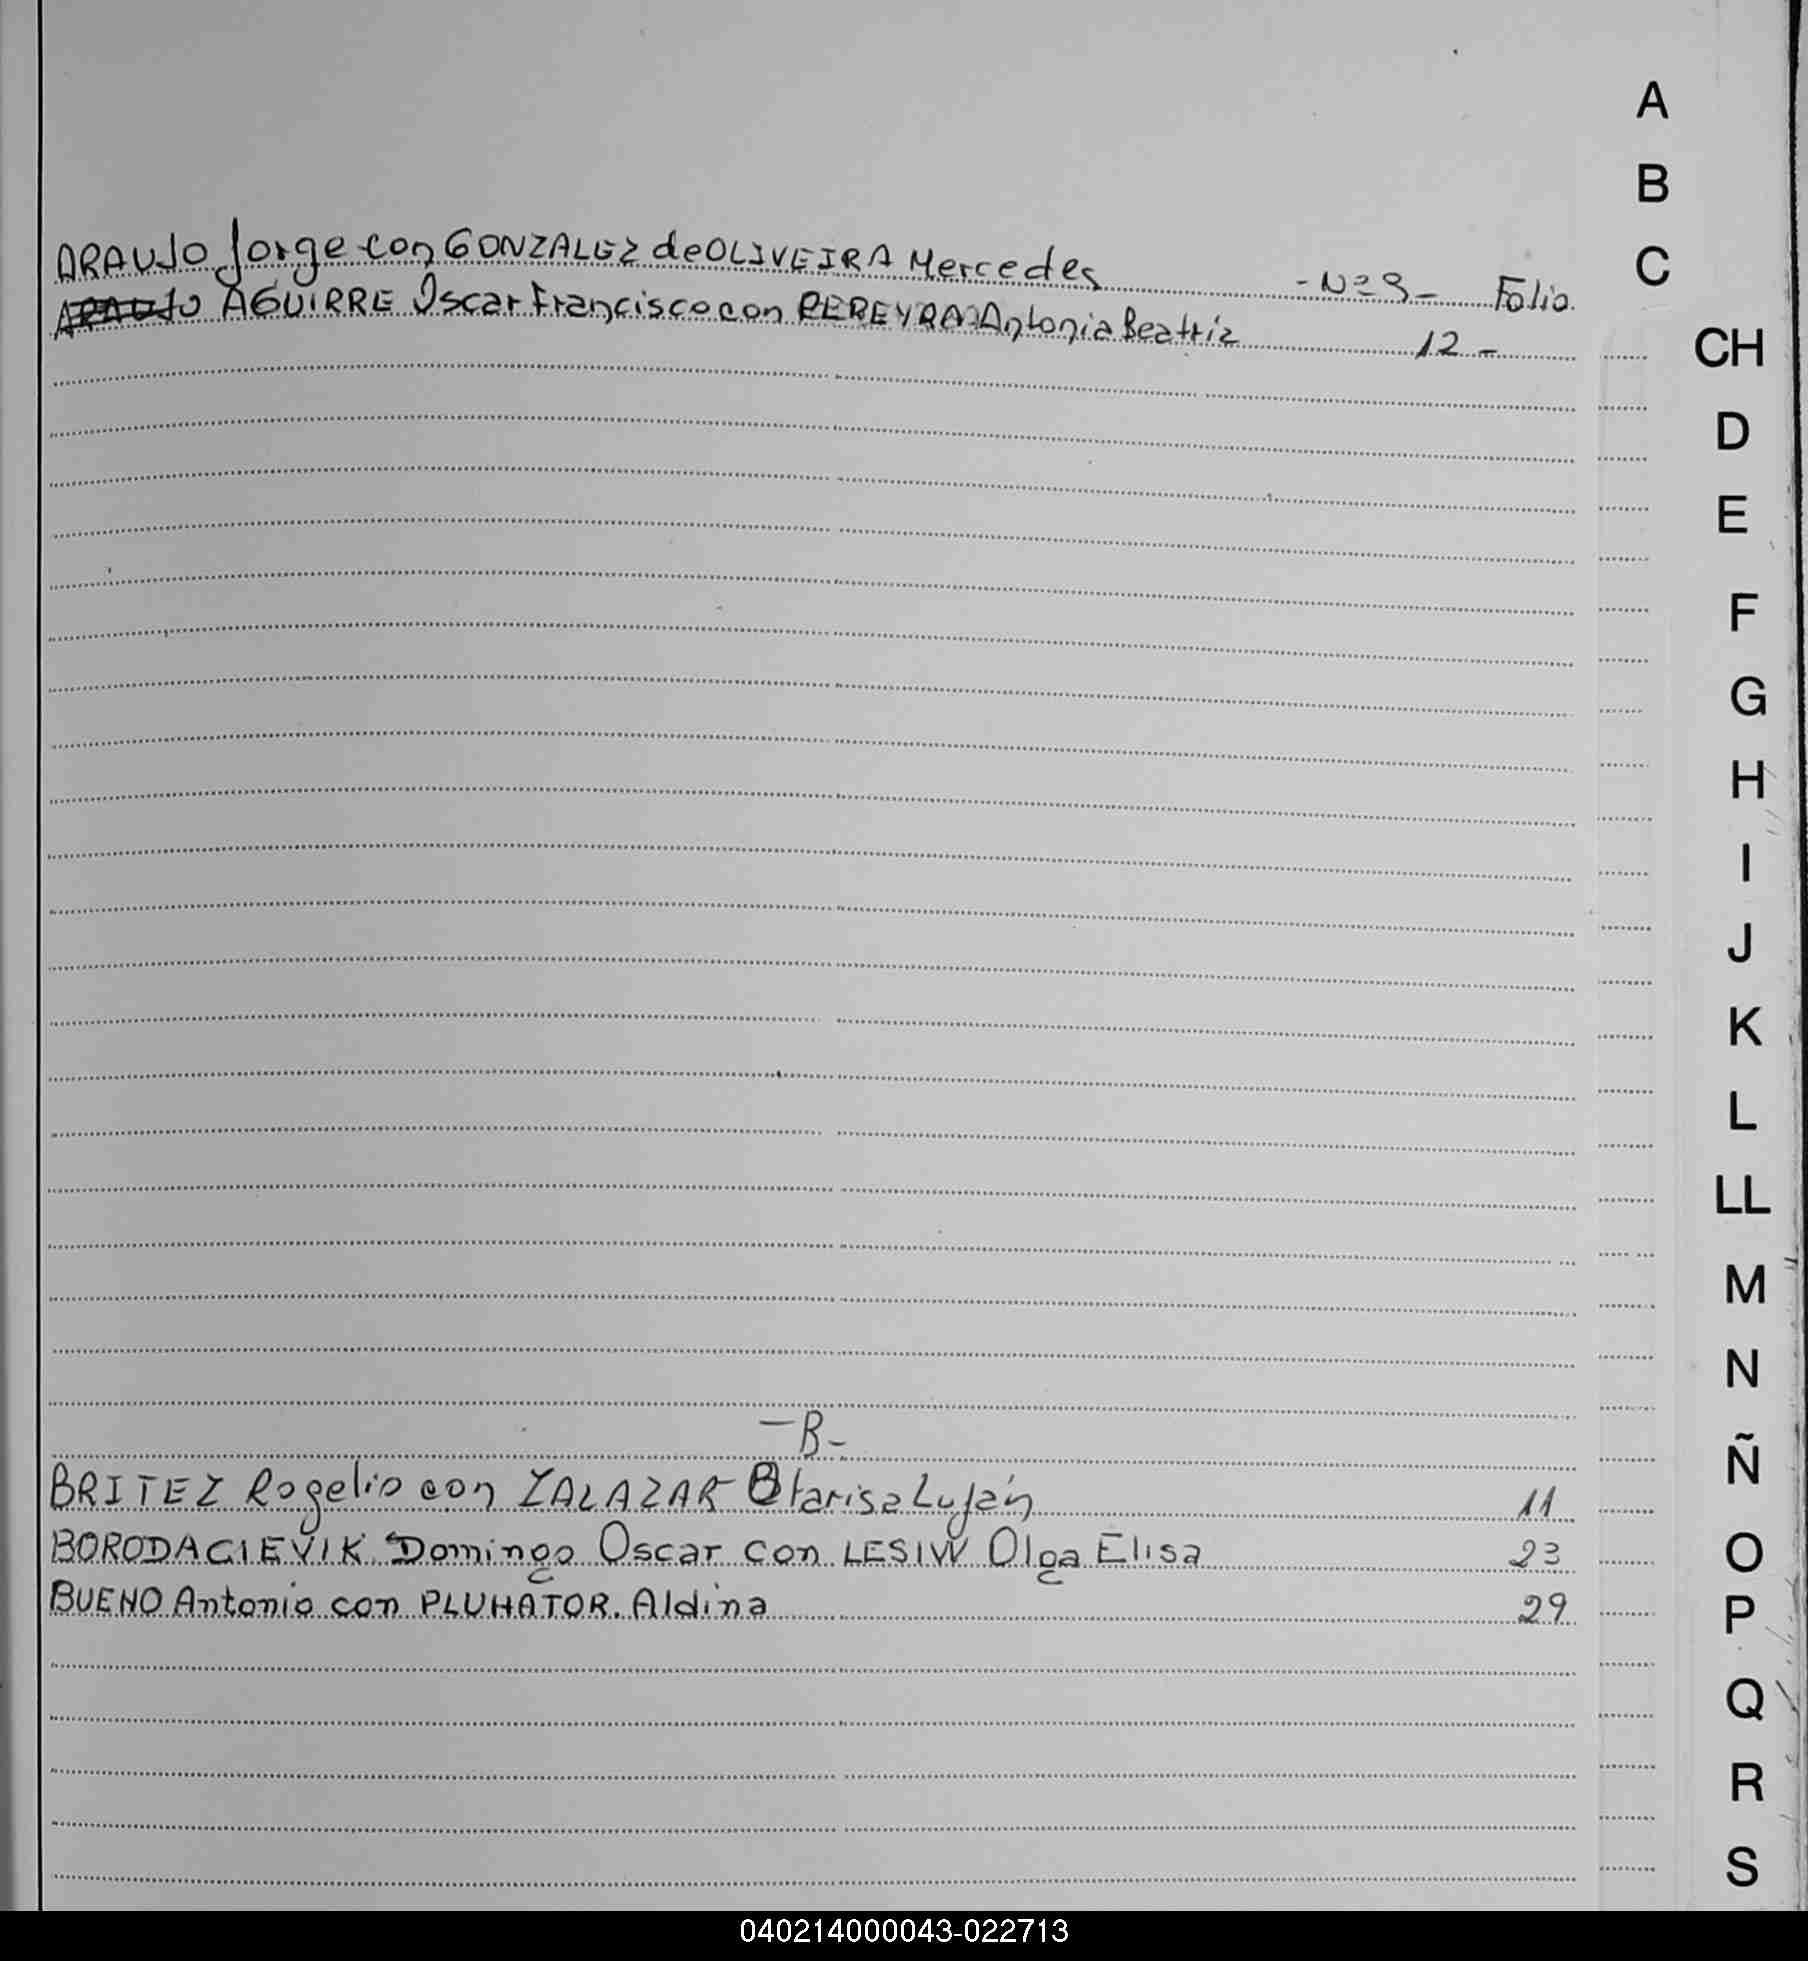 A
B
C
CH
D
E
F
G
H
I
J
K
L
LL
M
N
Ñ
O
P
Q
R
S
ARAUJO Jorge con GONZALEZ de OLIVEIRA Mercedes -Nº 9- Folio.
ARAUJO AGUIRRE Oscar Francisco con PEREYRA Antonia Beatriz 12-
-B-
BRITEZ Rogelio con ZALAZAR Luján 11
BORODACIEVIK Domingo Oscar con LESIW Olga Elisa 23
BUENO Antonio con PLUHATOR. Aldina 29
040214000043-022713